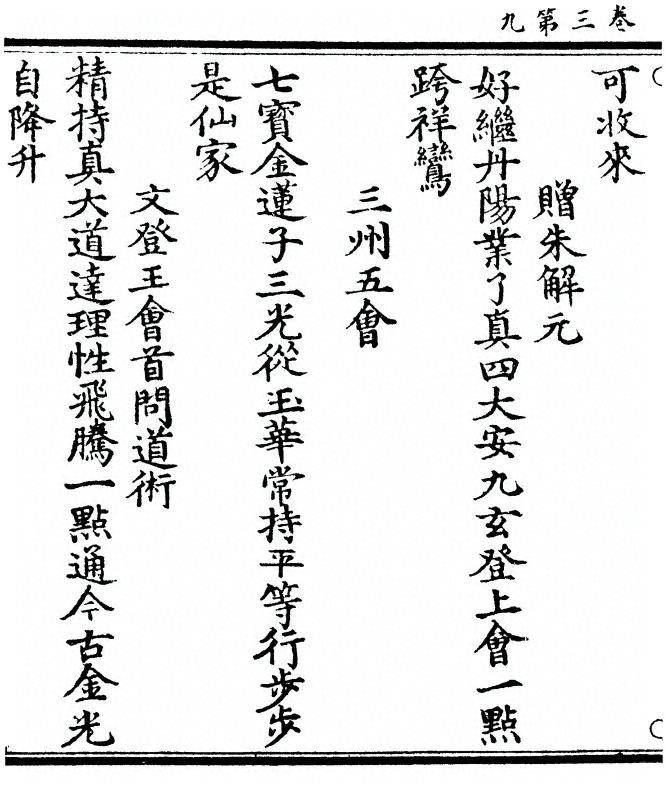 卷三第九
可收來
贈朱解元
好繼丹陽業了真四大安九玄登上會一點
跨祥鸞
三州五會
七寶金蓮子三光從玉華常持平等行步步
是仙家
文登王會首問道術
精持真大道達理性飛騰一點通今古金光
自降升